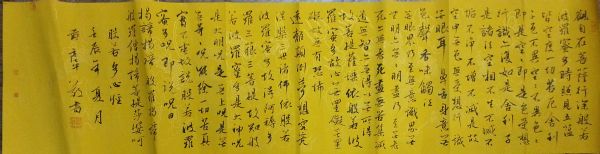 觀自在菩薩行深般若
波羅蜜多時照見五蘊
皆空度一切苦厄舍利
子色不異空空不異色色
即是空空即是色受想
行識亦復如是舍利子
是諸法空相不生不滅不
垢不淨不增不減是故
空中無色無受想行識
無眼耳鼻舌身意無
色聲香味觸法
無眼界乃至無意識界
無無明亦無無明盡乃至無老
死亦無老死盡無苦集滅
道無智亦無得以無所得
故菩提薩埵依般若波
羅蜜多故心無罣礙無罣
礙故無有恐怖
遠離顛倒夢想究竟
涅槃三世諸佛依般若
波羅蜜多故得阿耨多
羅三藐三菩提故知般
若波羅蜜多是大神咒
是大明咒是無上咒是無
等等咒能除一切苦真
實不虛故說般若波羅
蜜多咒即說咒曰
揭諦揭諦波羅揭諦
波羅僧揭諦菩提薩婆訶
般若多心經
壬辰年夏月